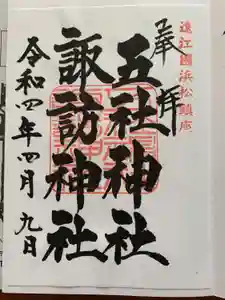 遠江國浜松鎮座
奉拝
五社神社
諏訪神社
令和四年四月九日